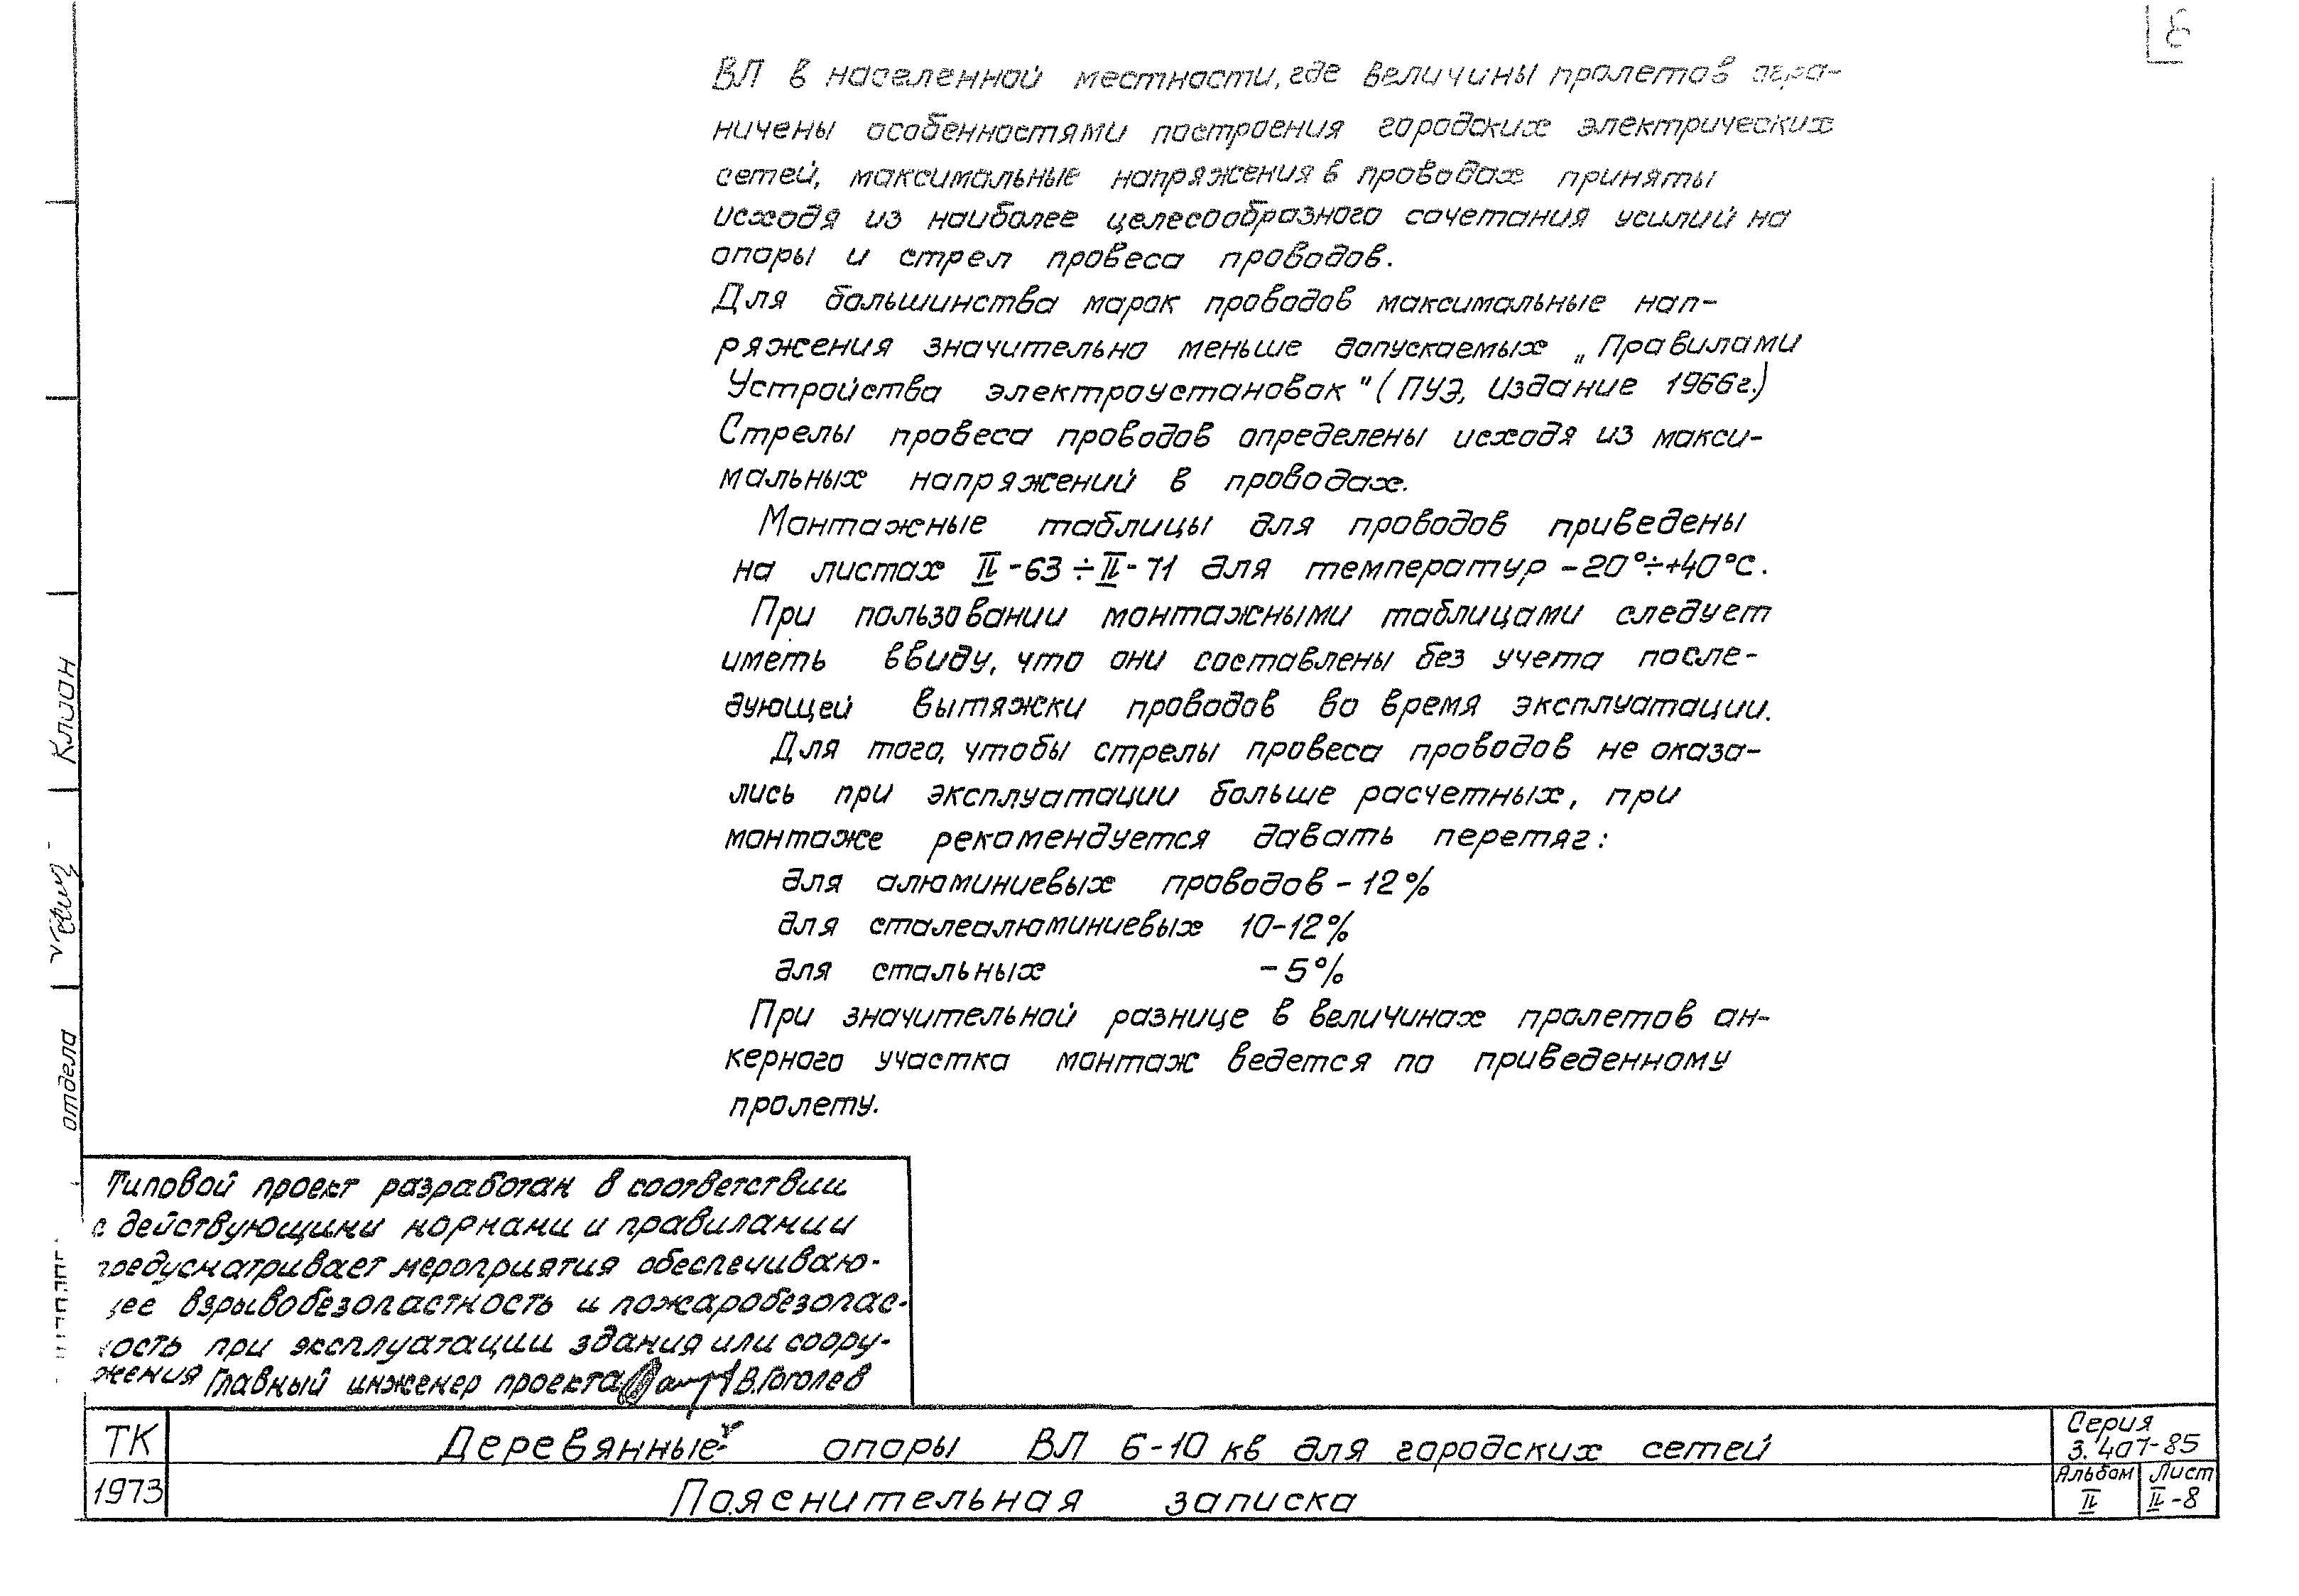 ВЛ в населенной местности, где величины пролетов огра-
ничены особенностями построения городских электрических
сетей, максимальные напряжения в проводах приняты
исходя из наиболее целесообразного сочетания усилий на
опоры и стрел провеса проводов.
Для большинства марок проводов максимальные нап-
ряжения значительно меньше допускаемых „Правилами
Устройства электроустановок" (ПУЭ, издание 1966г.)
Стрелы провеса проводов определены исходя из макси-
мальных напряжений в проводах.
Монтажные таблицы для проводов приведены
на листах II-63÷II-71 для температур -20°÷+40°С.
При пользовании монтажными таблицами следует
иметь ввиду, что они составлены без учета после-
дующей вытяжки проводов во время эксплуатации.
Для того, чтобы стрелы провеса проводов не оказа-
лись при эксплуатации больше расчетных, при
монтаже рекомендуется давать перетяг:
для алюминиевых проводов - 12%
для сталеалюминиевых 10-12%
для стальных - 5%
При значительной разнице в величинах пролетов ан-
керного участка монтаж ведется по приведенному
пролету.
Клион
отдела
Типовой проект разработан в соответствии
с действующими нормами и правилами и
предусматривает мероприятия обеспечиваю-
щее взрывобезопастность и пожаробезопас-
ность при эксплуатации здания или соору-
жения Главный инженер проекта В.Гоголев
ТК
1973
Деревянные опоры ВЛ 6-10 кв для городских сетей
Пояснительная записка
Серия
3.407-85
Альбом Лист
II II-8